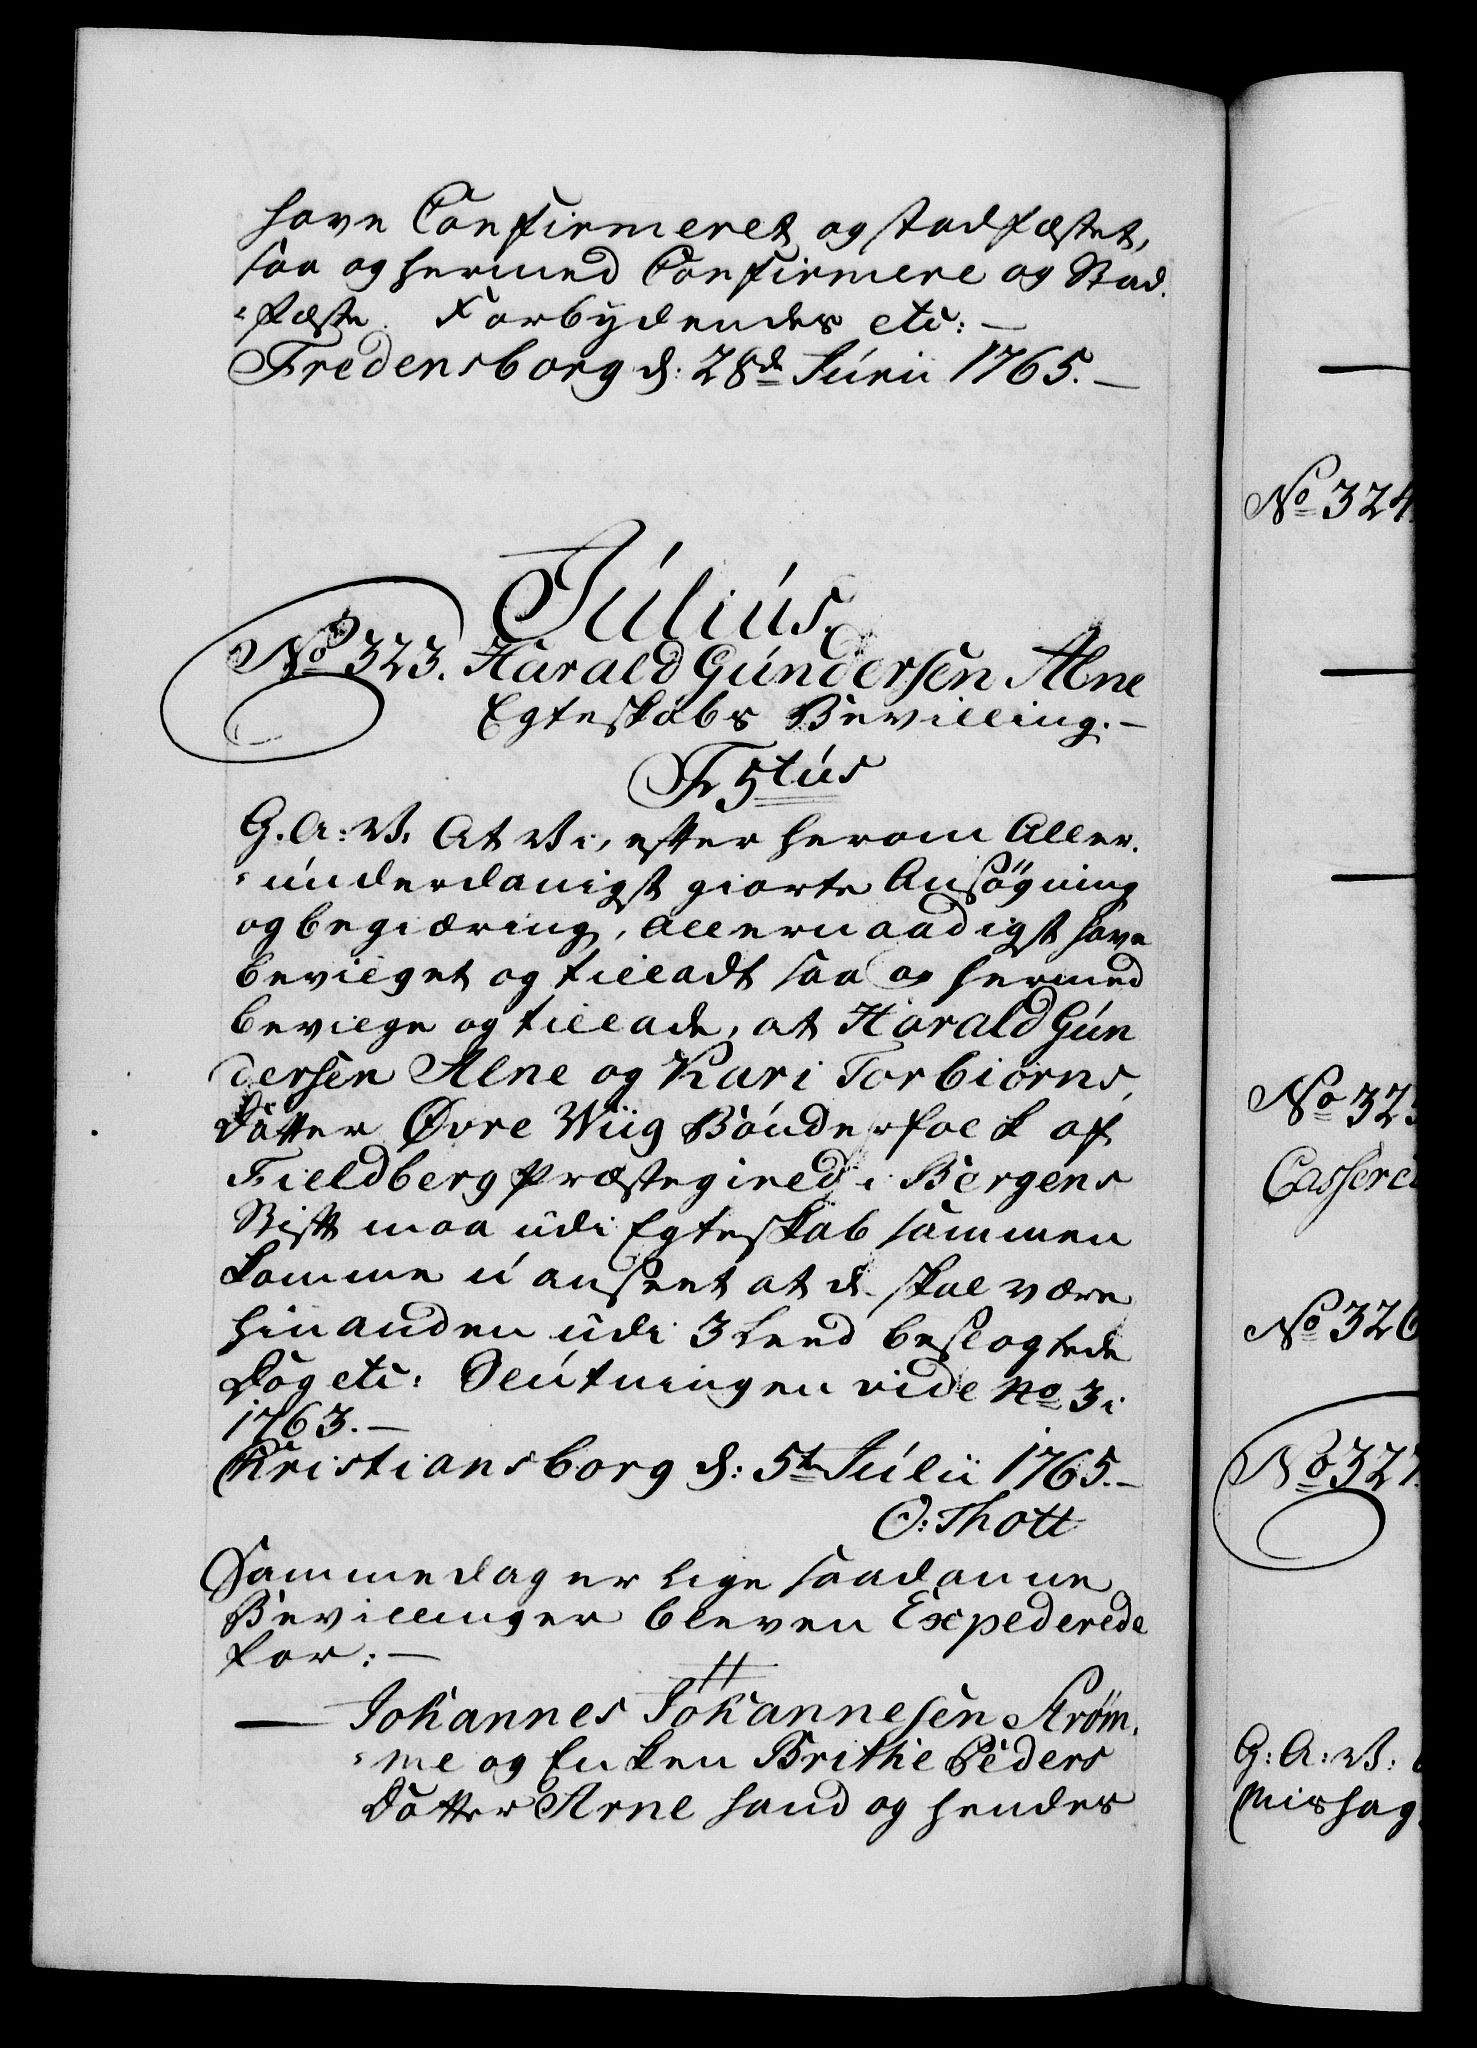 have Confirmeret og stadfæstet,
saa og hermed Confirmere og Stad-
-fæste. Forbydendes etc: —
Fredensborg d: 28de Junii 1765. —
Julius.
No 323. Harald Gundersen Alne
Egteskabs Bevilling. —
F 5tus
G. A: V. At Vi, efter herom Aller-
-underdanigst giorte Ansøgning
og begiæring, allernaadigst have
bevilget og tilladt saa og hermed
bevilge og tillade, at Harald Gun
dersen Alne og Kari Torbiørns
Datter Øvre Wiig Bønderfolk af
Fieldberg Præstegield i Bergens
Stift maa udi Egteskab sammen
komme uanseet at de skal være
hinanden udi 3 Leed beslægtede
Dog etc: Slutningen vide No 3 i
1763. —
Kristiansborg d: 5te Julii 1765. —
O: Thott
Samme dag er lige saadanne
Bevillinger bleven Expederede
for: —
— Johannes Johannesen Strøm-
-me og Enken Brithe Peders
Datter Arne hand og hendes
No 324
No 32
Casser
No 326
No 327
G: A: V:
Mishag